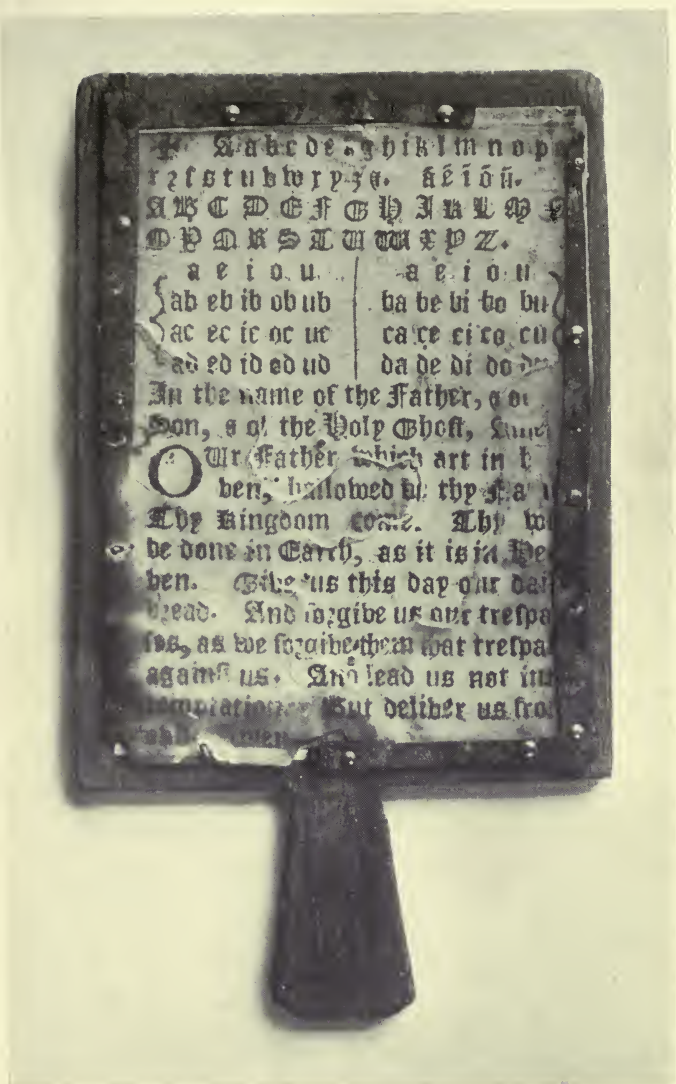 ✠ A a b c d e f g h i k l m n o p
r ꝛ ſ s t u v w x y z &. ã ẽ ĩ õ ũ.
A B C D E F G H I K L M
O P Q R S T U W X Y Z.
a e i o u a e i o u
ab eb ib ob ub ba be bi bo bu
ac ec ic oc uc ca ce ci co cu
ad ed id od ud da de di do
In the name of the Father, &
Son, & of the Holy Ghoſt,
OUr Father which art in
ven, hallowed be thy
Thy Kingdom come. Thy
be done in Earth, as it is in He-
ven. Give us this day our
bread. And forgive us our treſpa
ſes, as we forgive them that treſpa
againſt us. And lead us not
temptation. But deliver us from